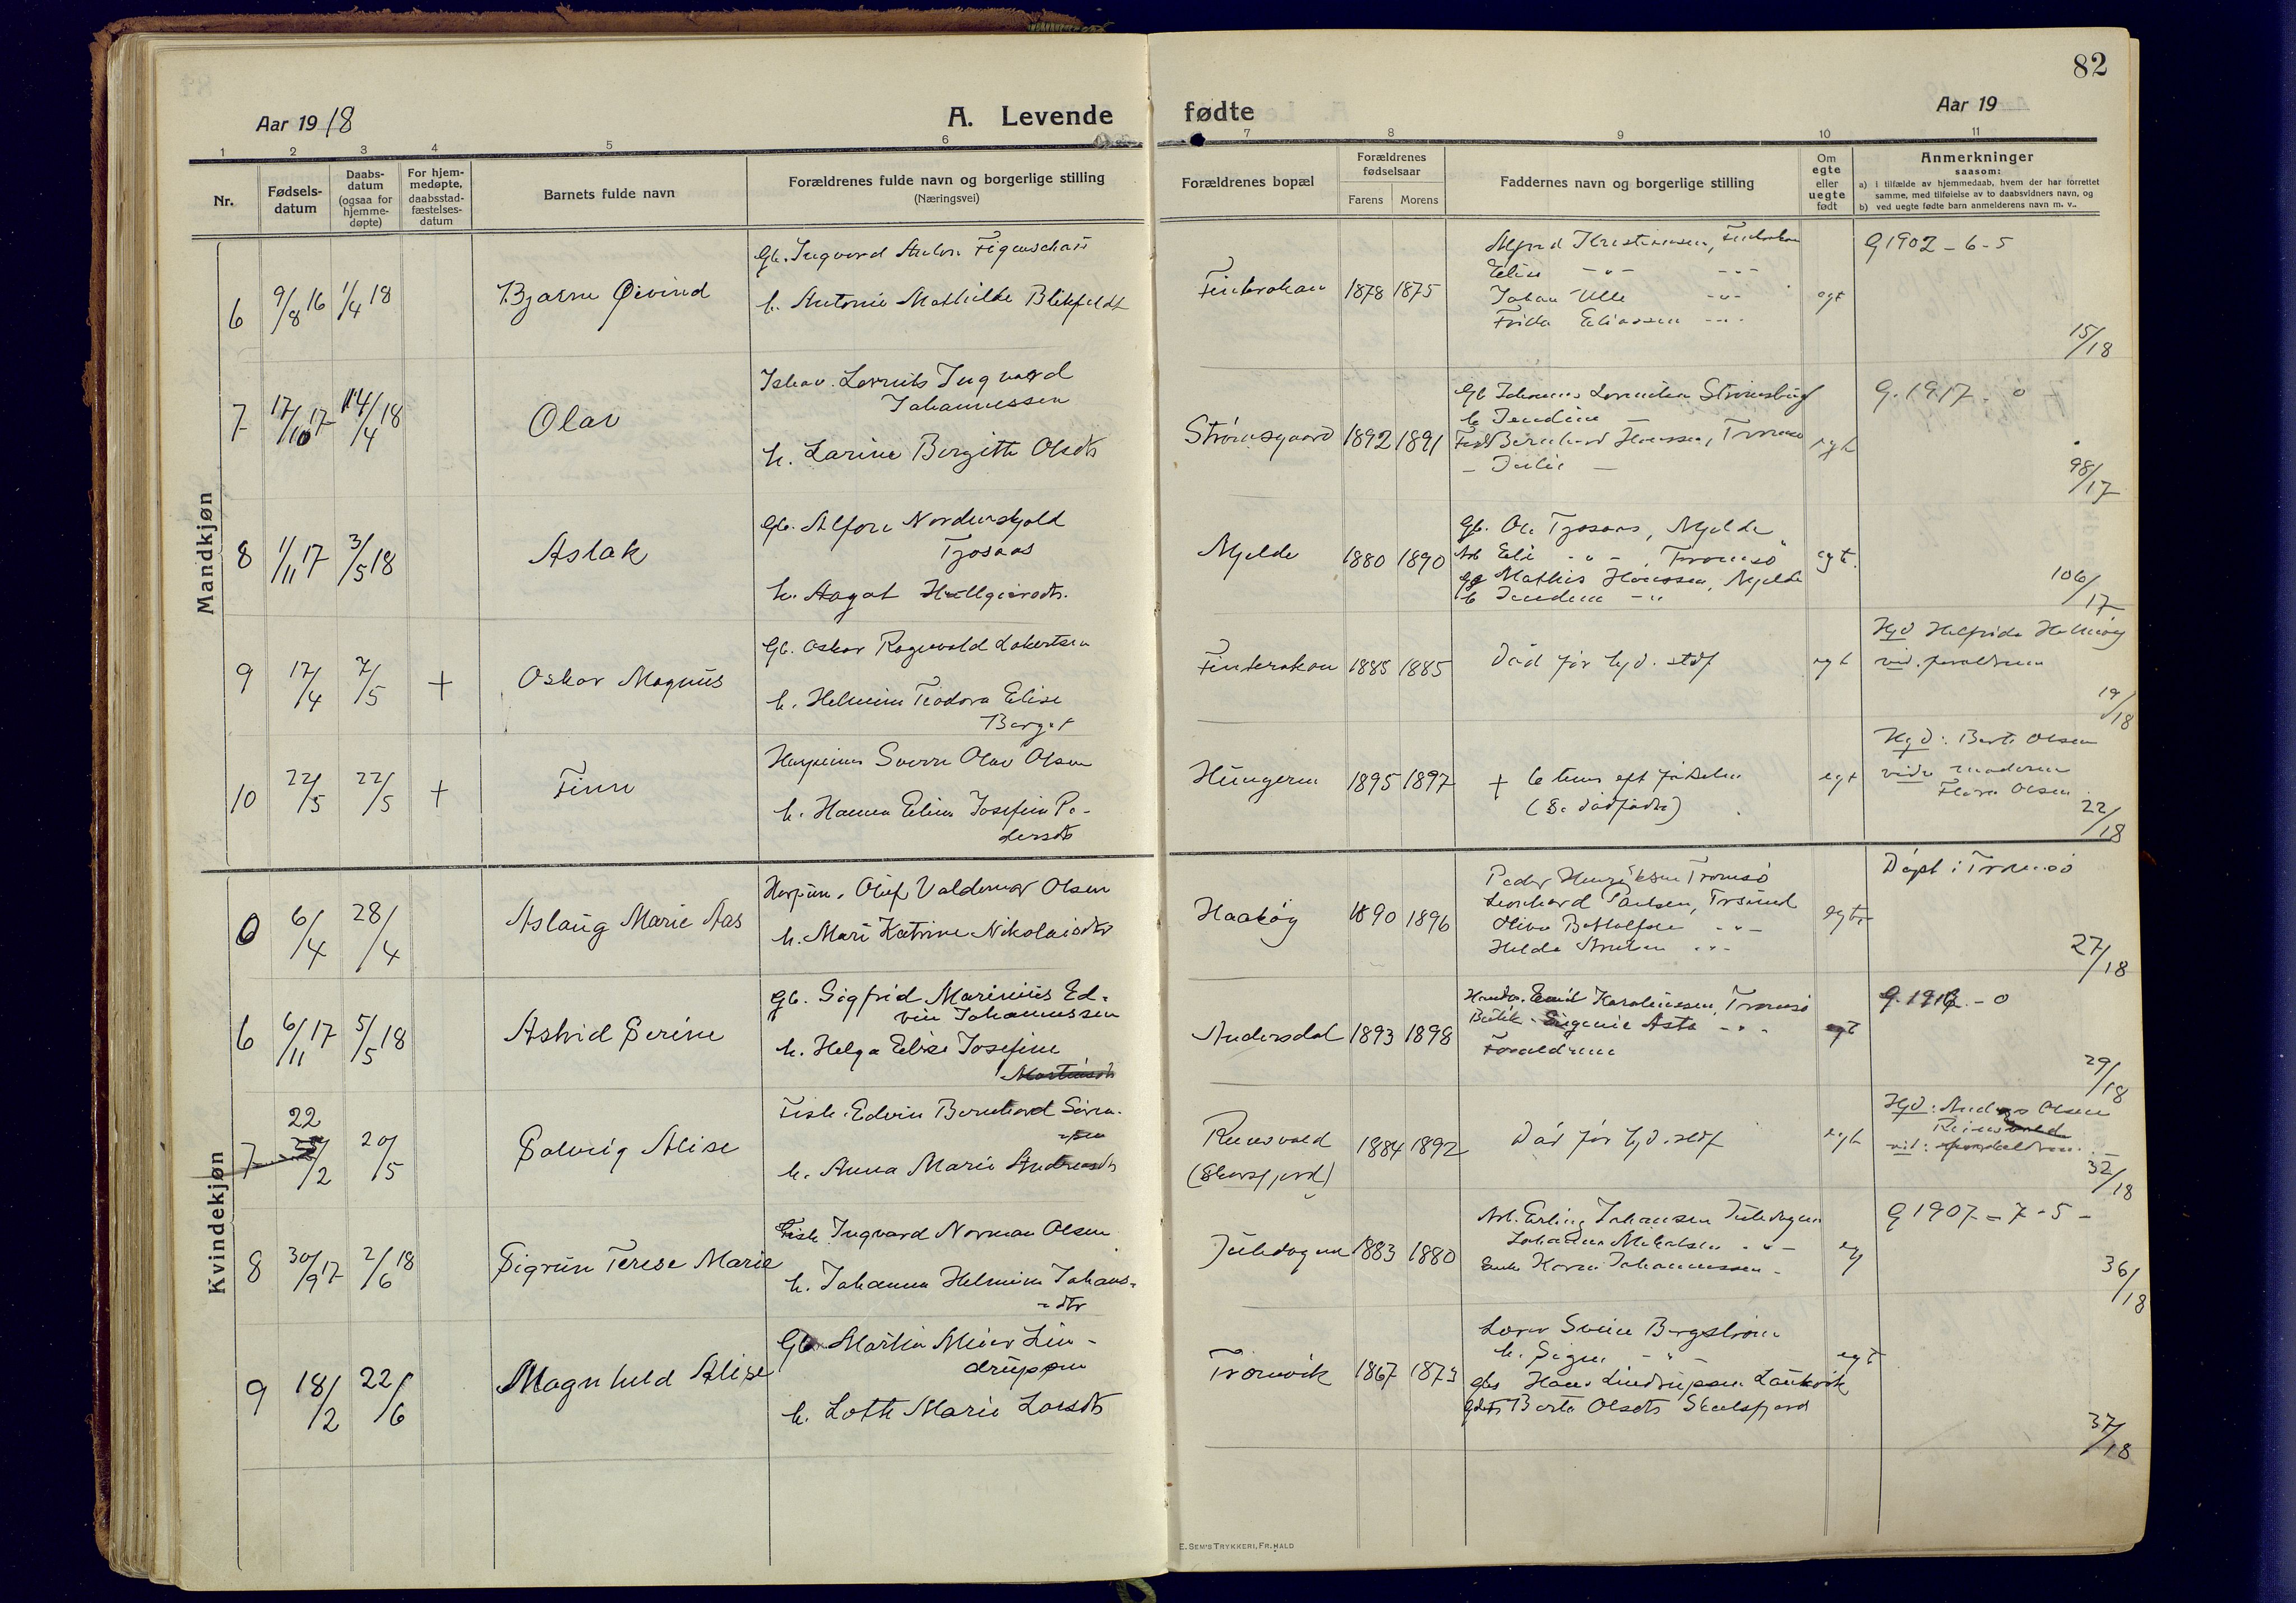 82
Aar 1918
A. Levende
fødte
Aar 19
1 2 3 4 5 6 7 8 9 10 11
Nr.
Fødsels-
datum
Daabs-
datum
(ogsaa for
hjemme-
døpte)
For hjem-
medøpte,
daabsstad-
fæstelses-
datum
Barnets fulde navn
Forældrenes fulde navn og borgerlige stilling
(Næringsvei)
Forældrenes bopæl
Forældrenes
fødselsaar
Farens Morens
Faddernes navn og borgerlige stilling
Om
egte
eller
uegte
født
Anmerkninger
saasom:
a) i tilfælde av hjemmedaab, hvem der har forrettet
samme, med tilføielse av to daabsvidners navn, og
b) ved uegte fødte barn anmelderens navn m. v..
Mandkjøn
6 9/8 16 1/4 18 Bjarne Øivind
Gb. Ingvard Anton Figenschau
h. Antonie Mathilde Blikfeldt
1878 1875
Alfred Kristiansen,
Elise -"- -"-
Johan Ulle -"-
Frida Eliassen -"-
egt
G 1902 - 6 - 5
15/18
7 17/10 17 14/4 18 Olav
Lornits Ingvard
Johannessen
h. Larine Bergitte Olsdtr
Strømsgaard 1892 1891
Gb Johannes Lornitsen Strømsborg
h Jendine
Bernhard Hanssen, Tromsø
- Julie -
egt
G. 1917 - 0
98/17
8 1/11 17 3/5 18 Aslak
Gb. Alfon Nordenskjold
Tjosaas
h. Aagot Hallgiersdtr.
Mjelde 1880 1890
Gb. Ole Tjosaas, Mjelde
Arb Eli -"- , Tromsø
Mathis Hanssen, Mjelde
h Jendine -"-
egt.
106/17
9 17/4 7/5 + Oskar Magnus
Gb. Oskar Ragnvald Lobertsen
h. Helmine Teodora Elise
Berget
1885 1885
Død før hjd. stdf
egt
Hjd Helfrida
vid. forældrene
19/18
10 22/5 22/5 + Finn
Sverre Olav Olsen
h. Hanna Eline Josefine Pe-
dersdtr
Hungeren 1895 1897
+ 6 tim eft fødselen
(Se dødfødte)
egt
Hjd: Berte Olsen
vidn moderen
Flora Olsen
22/18
Kvindekjøn
0 6/4 28/4 Aslaug Marie Aas
Harpun. Oluf Valdemar Olsen
h. Mari Katrine Nikolaisdtr
Haakøy 1890 1896
Peder Henriksen Tromsø
Leonhard Paulsen, Trsund
Olivia -"-
Helda -"-
egte
Døpt i Tromsø
27/18
6 6/11 17 5/5 18 Astrid Serine
Gb. Sigfrid Marinius Ed-
vin Johannessen
h. Helga Elise Josefine
Martinsdtr
Andersdal 1893 1898
Emil Karoliussen, Tromsø
Butik. Eugenie Asta -"-
Forældrene
egt
29/18
7 22/2 20/5 Solveig Alise
Fisk. Edvin Bernhard Søren-
sen
h. Anna Marie Andreasdtr
Reinsvold
1884 1892
Død før hjd. stdf
egt
Hjd: Anders Olsen
Reinsvold
vid: forældrene.
32/18
8 30/9 17 2/6 18 Sigrun Terese Marie
Fisk Ingvard Norman Olsen
h. Johanna Helmine Johans-
dtr
1883 1880
Arb. Erling Johansen
Johanna Mikalsen -"-
Enke Karen Johannessen -
egt
G 1907 - 7 - 5 -
36/18
9 18/2 22/6 Magnhild Alise
Gb. Martin Meier Lin-
drupsen
h. Lotte Marie Larsdtr
Tromvik 1867 1873
Lærer Svein Bergstrøm
h. Signe -"-
Gbs Hans Lindrupsen Laukvik
Berte Olsdtr Skulsfjord
egt
37/18
E. SEM'S TRYKKERI, FR.HALD